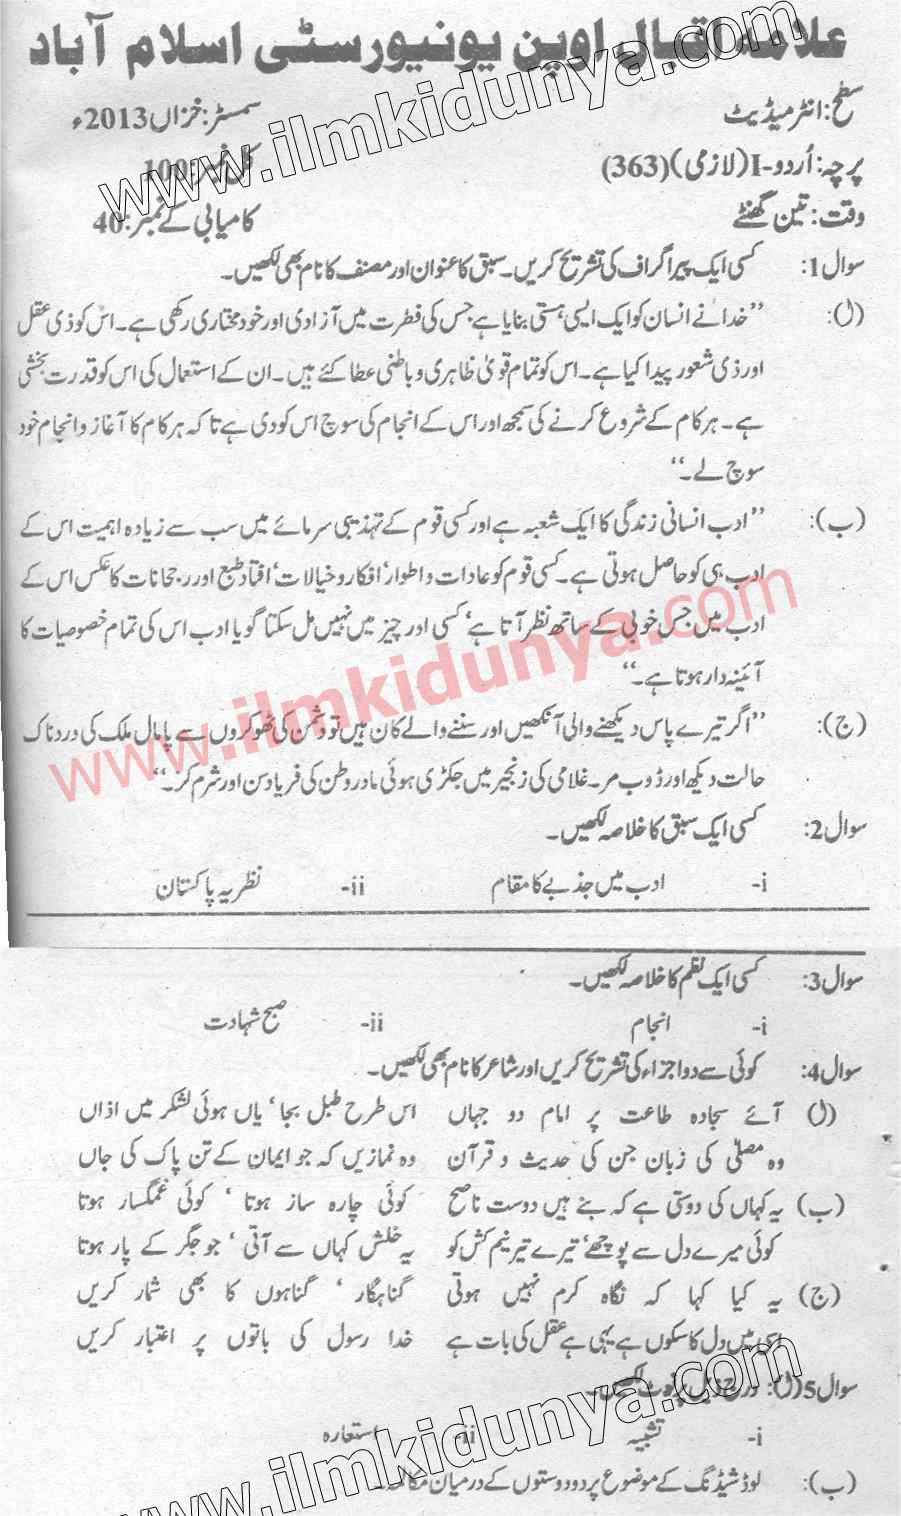 علامہ اقبال اوپن یونیورسٹی اسلام آباد
سطح: انٹرمیڈیٹ سمسٹر: خزاں 2013ء
پرچہ: اُردو-I (لازمی) (363) کل نمبر: 100
وقت: تین گھنٹے کامیابی کے نمبر: 40
سوال 1: کسی ایک پیراگراف کی تشریح کریں۔ سبق کا عنوان اور مصنف کا نام بھی لکھیں۔
(ل): ’’خدا نے انسان کو ایک ایسی ہستی بنایا ہے جس کی فطرت میں آزادی اور خود مختاری رکھی ہے۔ اس کو ذی عقل
اور ذی شعور پیدا کیا ہے۔ اس کو تمام قویٰ ظاہری و باطنی عطا کئے ہیں۔ ان کے استعمال کی اس کو قدرت بخشی
ہے۔ ہر کام کے شروع کرنے کی سمجھ اور اس کے انجام کی سوچ اس کو دی ہے تاکہ ہر کام کا آغاز و انجام خود
سوچ لے۔‘‘
(ب): ’’ادب انسانی زندگی کا ایک شعبہ ہے اور کسی قوم کے تہذیبی سرمائے میں سب سے زیادہ اہمیت اس کے
ادب ہی کو حاصل ہوتی ہے۔ کسی قوم کو عادات و اطوار‘ افکار و خیالات‘ افتاد طبع اور رجحانات کا عکس اس کے
ادب میں جس خوبی کے ساتھ نظر آتا ہے‘ کسی اور چیز میں نہیں مل سکتا گویا ادب اس کی تمام خصوصیات کا
آئینہ دار ہوتا ہے۔‘‘
(ج): ’’اگر تیرے پاس دیکھنے والی آنکھیں اور سننے والے کان ہیں تو دشمن کی ٹھوکروں سے پامال ملک کی دردناک
حالت دیکھ اور ڈوب مر۔ غلامی کی زنجیر میں جکڑی ہوئی مادر وطن کی فریاد سن اور شرم کر۔‘‘
سوال 2: کسی ایک سبق کا خلاصہ لکھیں۔
i- ادب میں جذبے کا مقام ii- نظریہ پاکستان
سوال 3: کسی ایک نظم کا خلاصہ لکھیں۔
i- انجام ii- صبح شہادت
سوال 4: کوئی سے دو اجزاء کی تشریح کریں اور شاعر کا نام بھی لکھیں۔
(ل) آئے سجادہ طاعت پر امام دو جہاں اس طرح طبل بجا‘ یاں ہوئی لشکر میں اذاں
وہ مصلّٰی کی زبان جن کی حدیث و قرآن وہ نمازیں کہ جو ایمان کے تن پاک کی جاں
(ب) یہ کہاں کی دوستی ہے کہ بنے ہیں دوست ناصح کوئی چارہ ساز ہوتا ‘ کوئی غمگسار ہوتا
کوئی میرے دل سے پوچھے‘ تیرے تیر نیم کش کو یہ خلش کہاں سے آتی ‘ جو جگر کے پار ہوتا
(ج) یہ کیا کہا کہ نگاہ کرم نہیں ہوتی گناہگار ‘ گناہوں کا بھی شمار کریں
اسی میں دل کا سکوں ہے یہی ہے عقل کی بات ہے خدا رسول کی باتوں پر اعتبار کریں
سوال 5(ل): درج ذیل پر نوٹ لکھیں۔
i- تشبیہ ii- استعارہ
(ب): لوڈشیڈنگ کے موضوع پر دو دوستوں کے درمیان مکالمہ
www.ilmkidunya.com
www.ilmkidunya.com
www.ilmkidunya.com